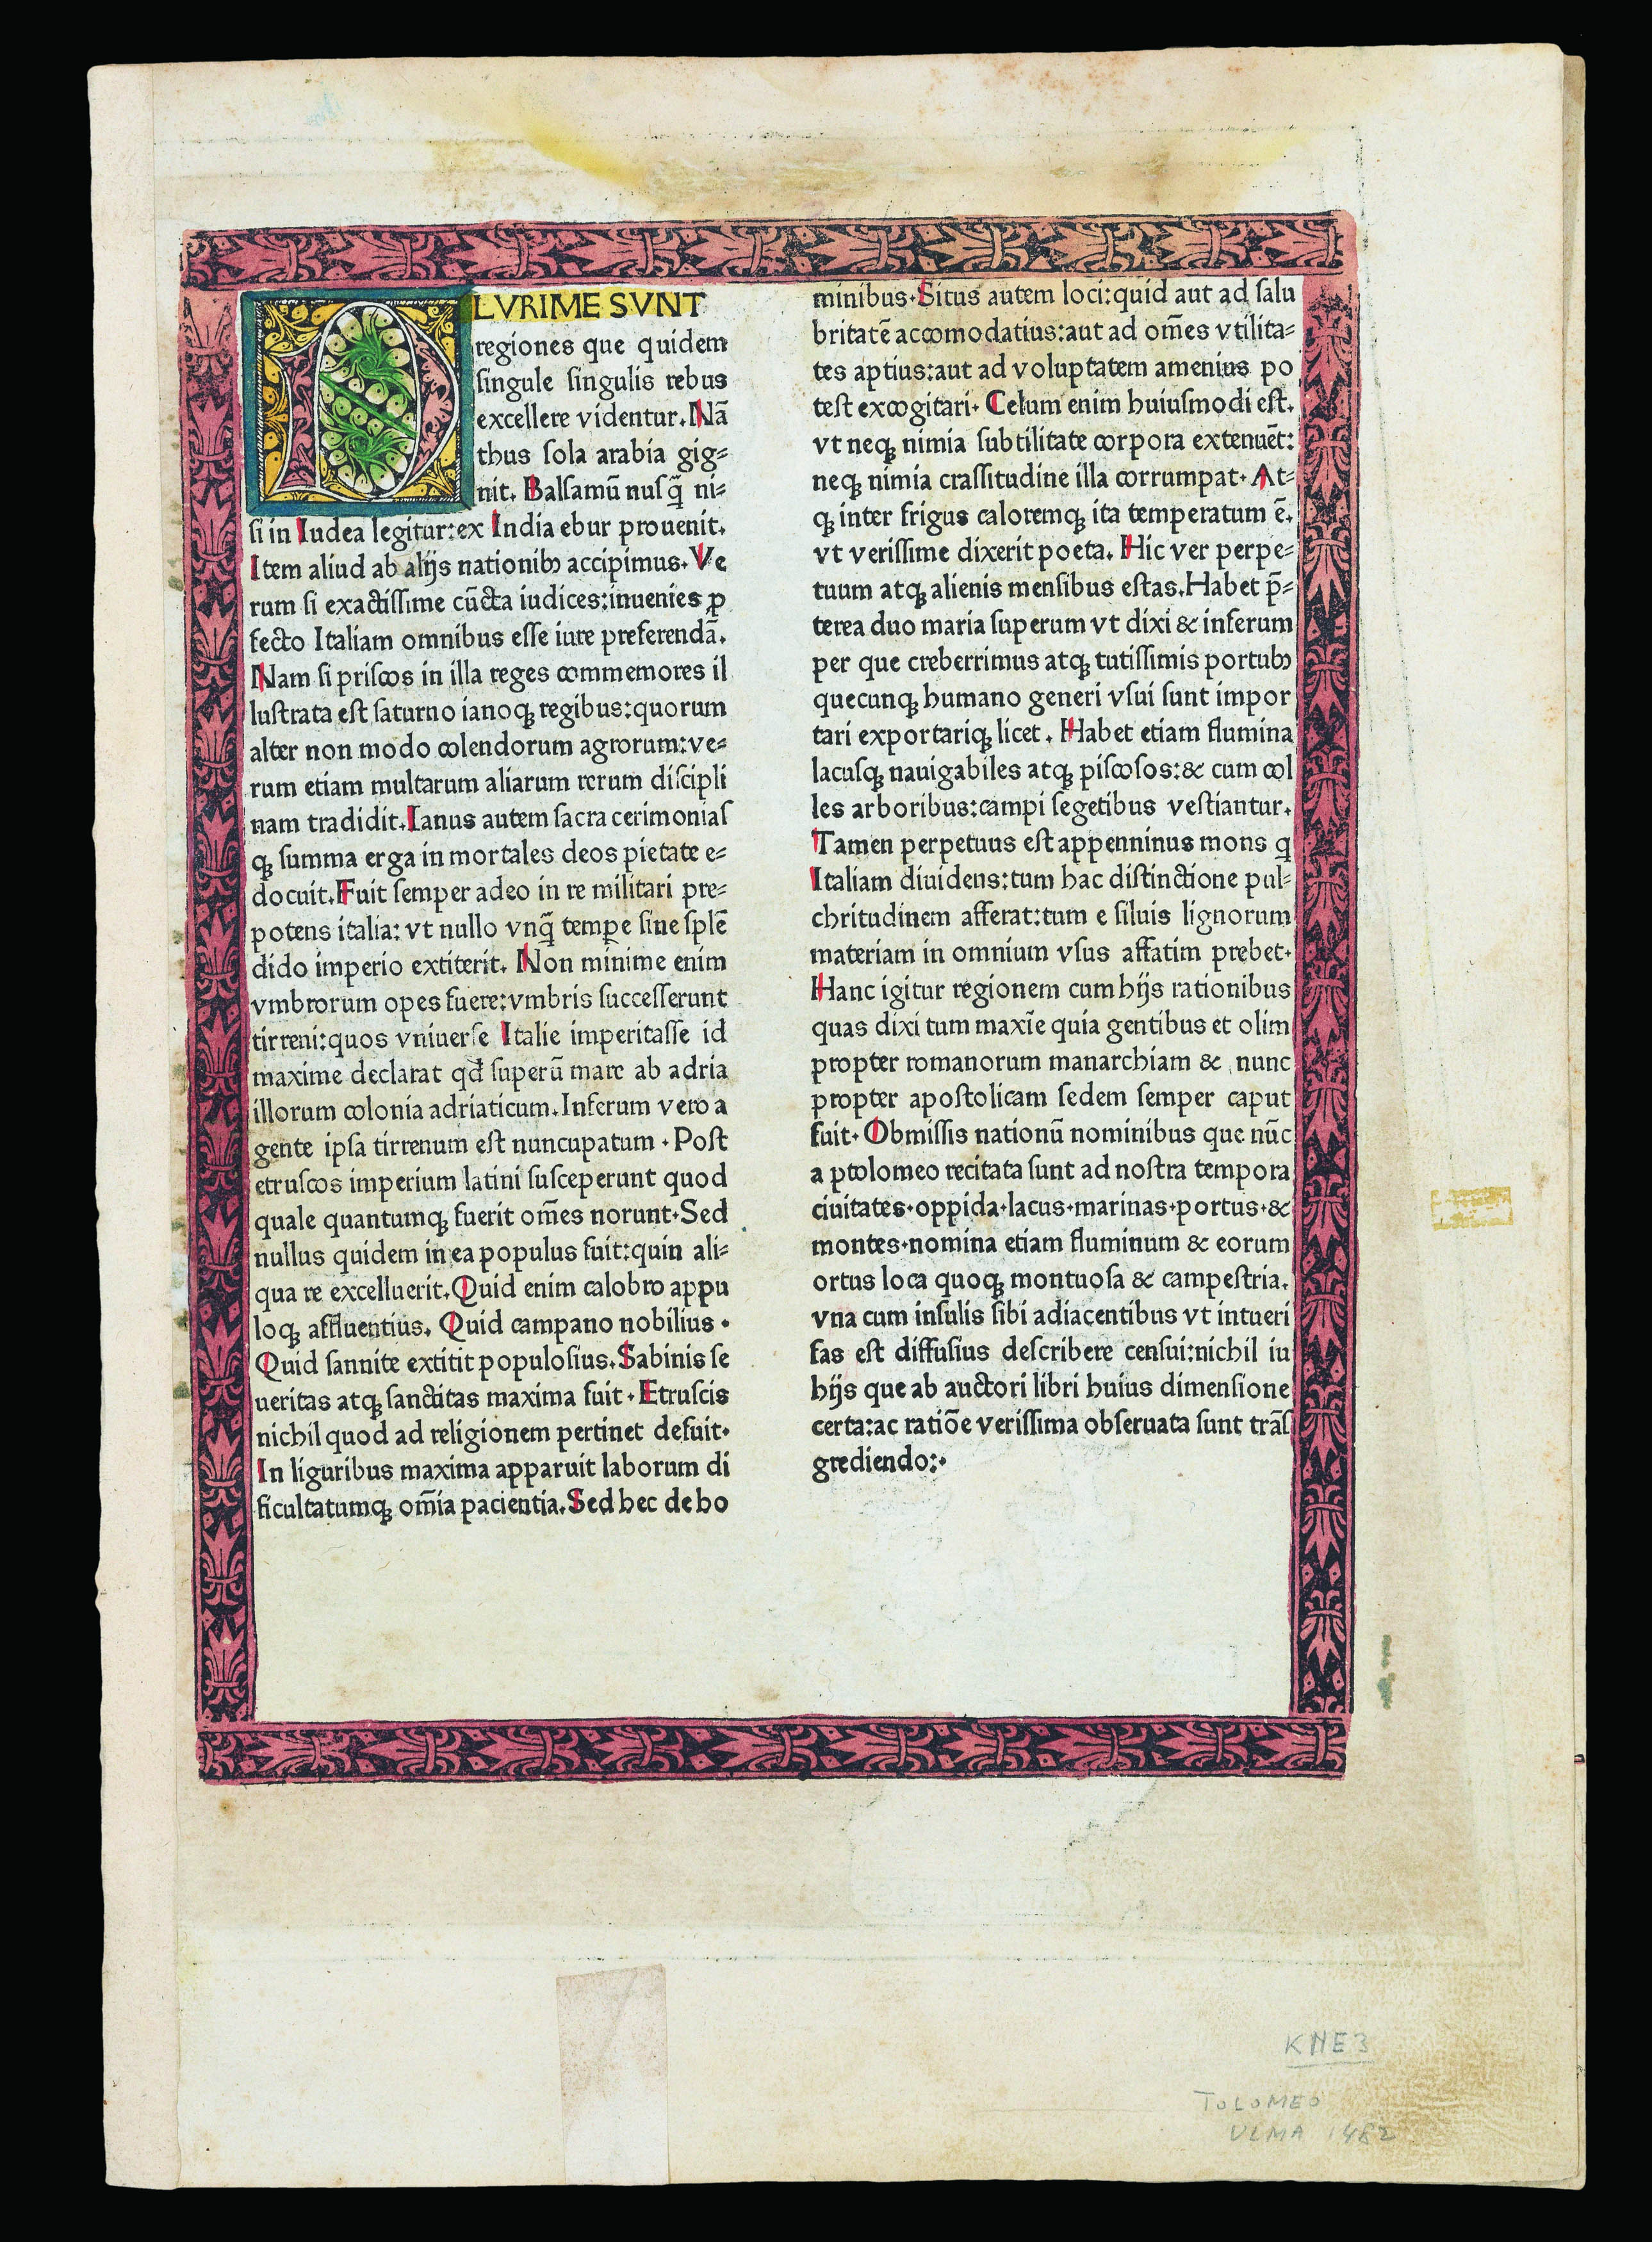 PLVRIME SVNT
regiones que quidem
ſingule ſingulis rebus
excellere videntur. Nā
thus ſola arabia gig=
nit. Balſamū nuſq̄ ni=
ſi in Iudea legitur:ex India ebur prouenit.
Item aliud ab alijs nationibꝰ accipimus. Ve
rum ſi exactiſſime cūcta iudices:inuenies ꝓ
fecto Italiam omnibus eſſe iure preferendā.
Nam ſi priſcos in illa reges commemores il
luſtrata eſt ſaturno ianoqꝫ regibus:quorum
alter non modo colendorum agrorum:ve=
rum etiam multarum aliarum rerum diſcipli
nam tradidit. Ianus autem ſacra cerimoniaſ
qꝫ ſumma erga in mortales deos pietate e=
docuit. Fuit ſemper adeo in re militari pre=
potens italia: vt nullo vnq̄ tempe ſine ſplē
dido imperio extiterit. Non minime enim
vmbrorum opes fuere:vmbris ſucceſſerunt
tirreni:quos vniuerſe Italie imperitaſſe id
maxime declarat qd̄ ſuperū mare ab adria
illorum colonia adriaticum. Inferum vero a
gente ipſa tirrenum eſt nuncupatum · Poſt
etruſcos imperium latini ſuſceperunt quod
quale quantumqꝫ fuerit om̄es norunt·Sed
nullus quidem in ea populus fuit:quin ali=
qua re excelluerit. Quid enim calobro appu
loqꝫ affluentius. Quid campano nobilius ·
Quid ſannite extitit populoſius. Sabinis ſe
ueritas atqꝫ ſanctitas maxima fuit · Etruſcis
nichil quod ad religionem pertinet defuit·
In liguribus maxima apparuit laborum di
ficultatumqꝫ om̄ia pacientia. Sed hec de ho
minibus·Situs autem loci:quid aut ad ſalu
britatē accomodatius:aut ad om̄es vtilita=
tes aptius:aut ad voluptatem amenius po
teſt excogitari· Celum enim huiuſmodi eſt.
vt neqꝫ nimia ſubtilitate corpora extenuēt:
neqꝫ nimia craſſitudine illa corrumpat· At=
qꝫ inter frigus caloremqꝫ ita temperatum ē.
vt veriſſime dixerit poeta. Hic ver perpe=
tuum atqꝫ alienis menſibus eſtas. Habet p̄=
terea duo maria ſuperum vt dixi & inferum
per que creberrimus atqꝫ tutiſſimis portubꝰ
quecunqꝫ humano generi vſui ſunt impor
tari exportariqꝫ licet . Habet etiam flumina
lacuſqꝫ nauigabiles atqꝫ piſcoſos:& cum col
les arboribus:campi ſegetibus veſtiantur.
Tamen perpetuus eſt appenninus mons q
Italiam diuidens:tum hac diſtinctione pul=
chritudinem afferat:tum e ſiluis lignorum
materiam in omnium vſus affatim prebet·
Hanc igitur regionem cum hijs rationibus
quas dixi tum maxīe quia gentibus et olim
propter romanorum manarchiam & nunc
propter apoſtolicam ſedem ſemper caput
fuit· Obmiſſis nationū nominibus que nūc
a ptolomeo recitata ſunt ad noſtra tempora
ciuitates·oppida·lacus·marinas·portus·&
montes·nomina etiam fluminum & eorum
ortus loca quoqꝫ montuoſa & campeſtria.
vna cum inſulis ſibi adiacentibus vt intueri
fas eſt diffuſius deſcribere cenſui:nichil iu
hijs que ab auctori libri huius dimenſione
certa:ac ratiōe veriſſima obſeruata ſunt trāſ
grediendo:·
KNE3
TOLOMEO
ULMA 1482